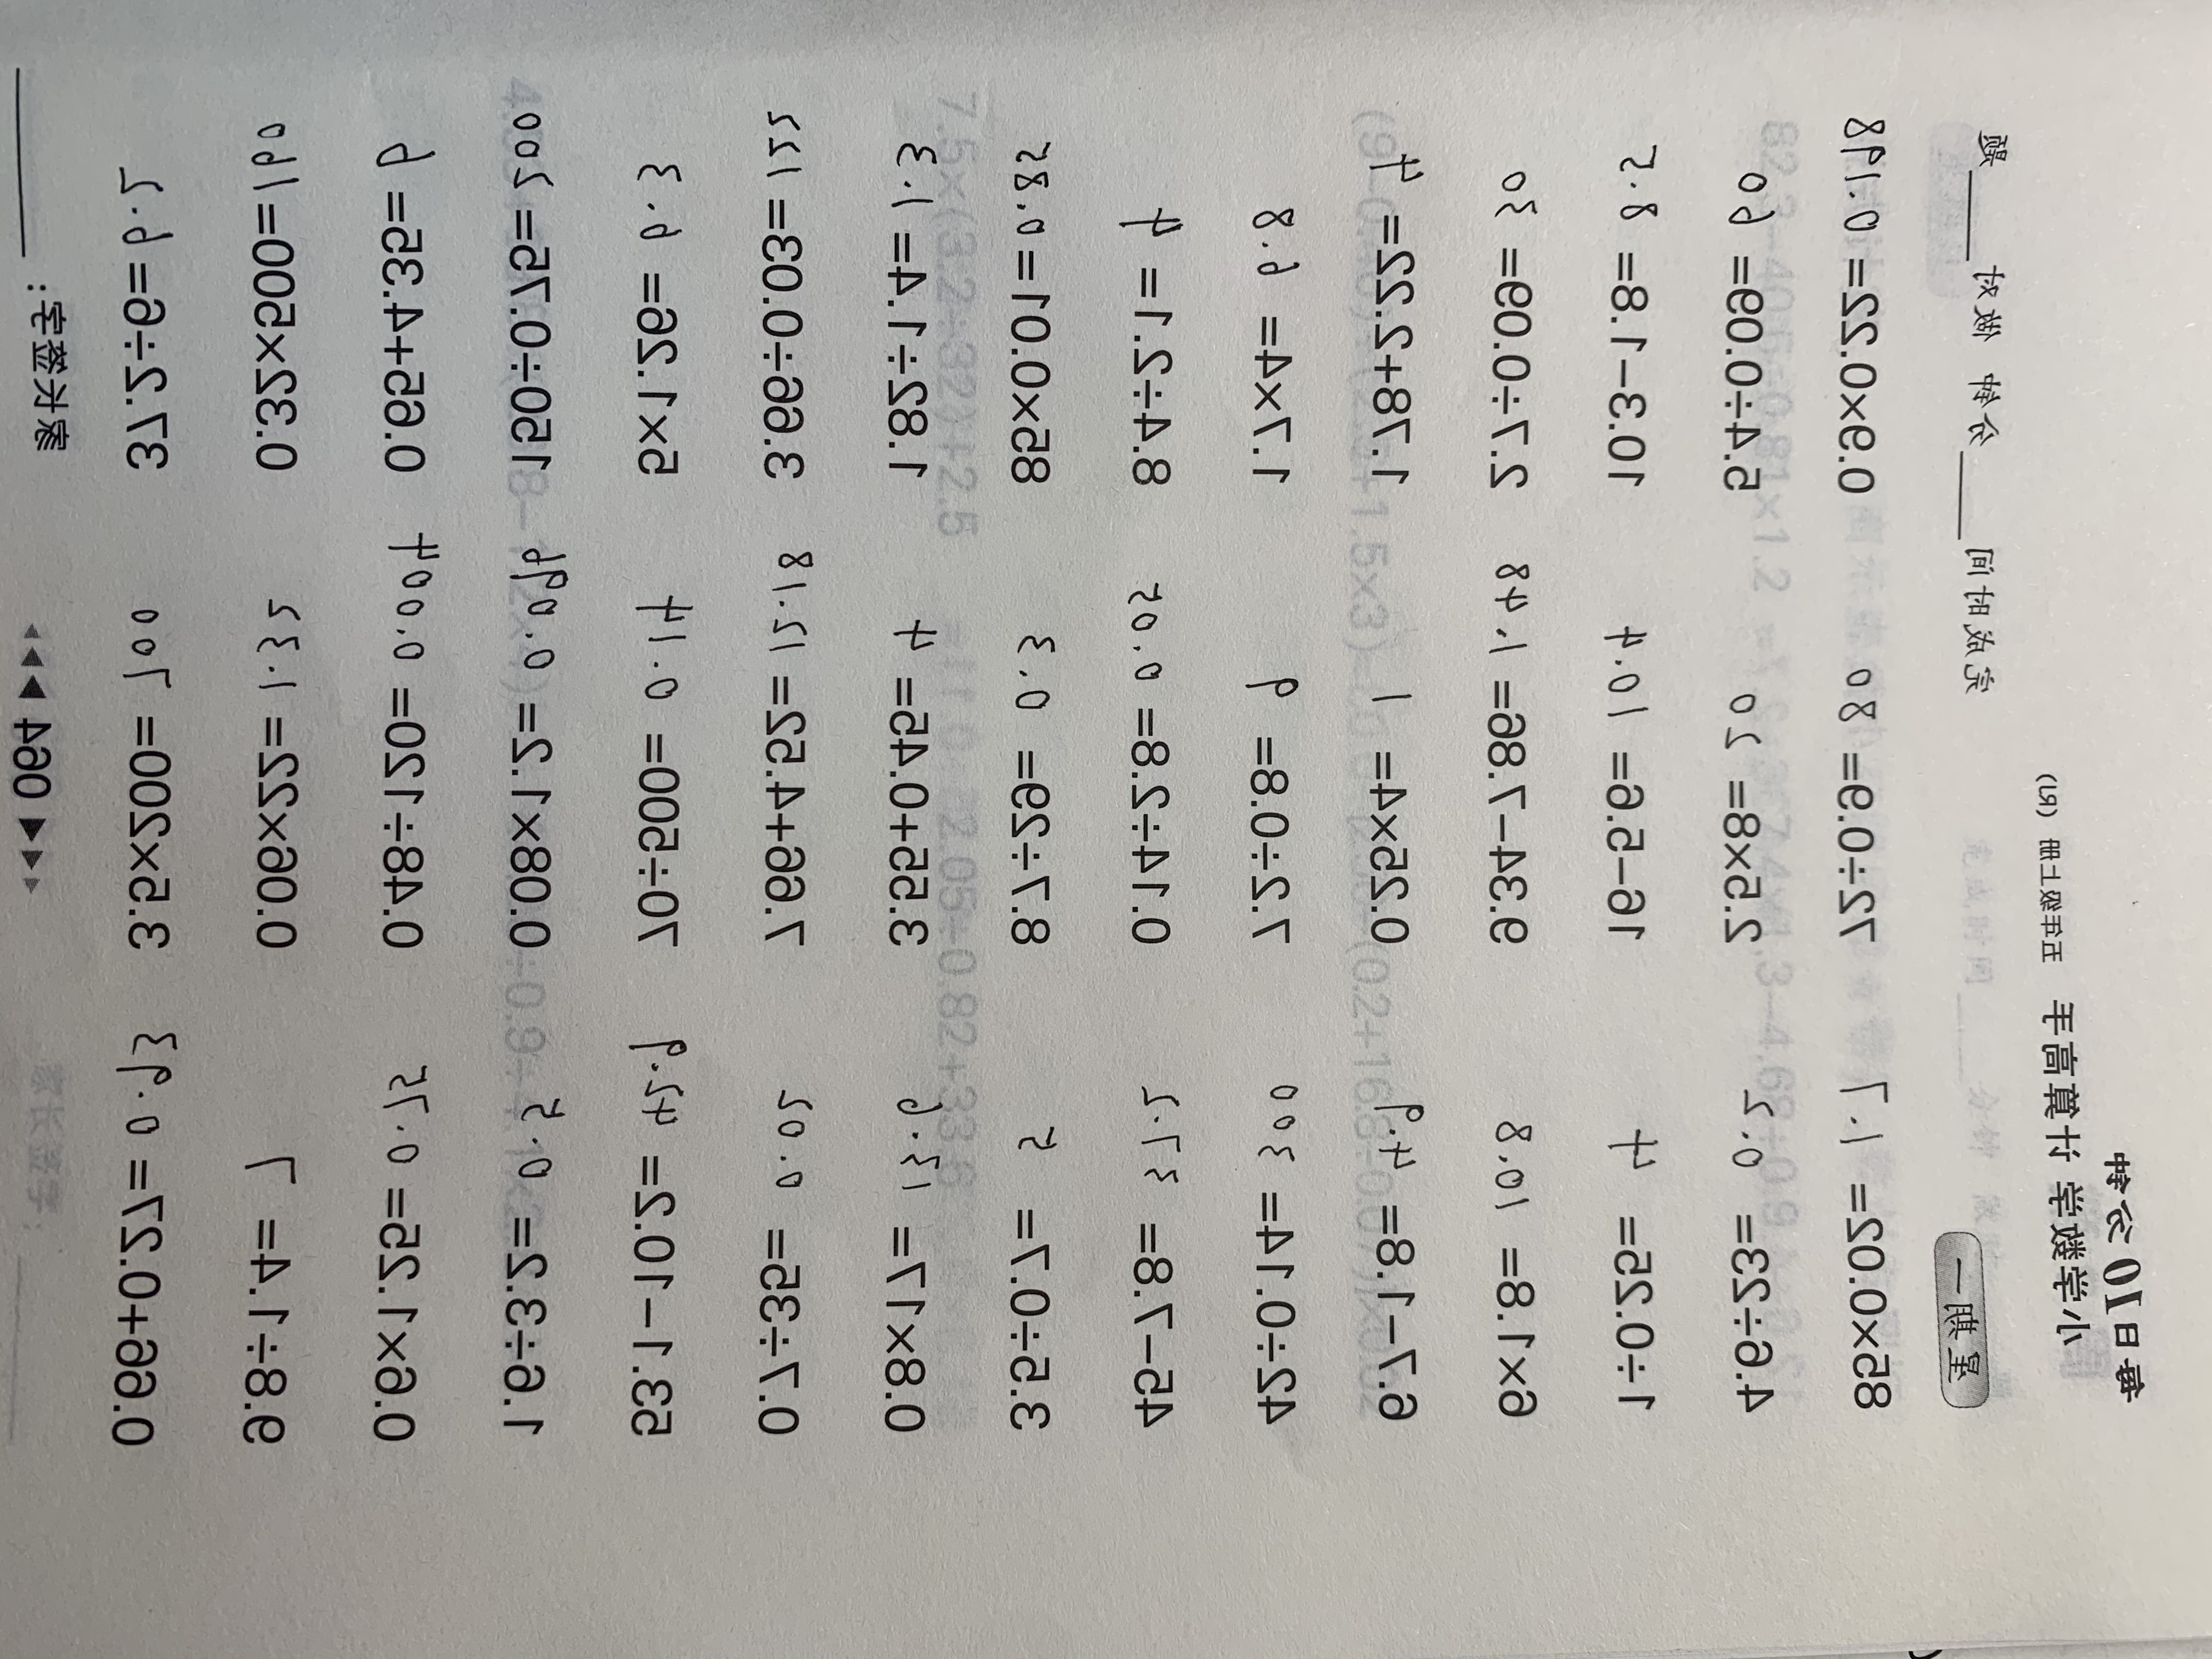 每日10分钟
小学数学 计算高手 五年级上册 (RJ)
星期一 完成时间____分钟 做对____题
85×0.02= 1.7 72÷0.9= 80 0.9×0.22= 0.198
4.6÷23= 0.2 2.5×8= 20 5.4÷0.09= 60
1÷0.25= 4 16−5.6= 10.4 10.3−1.8= 8.5
6×1.8= 10.8 9.34−7.86= 1.48 2.7÷0.09= 30
6.7−1.8= 4.9 0.25×4= 1 1.78+2.22= 4
42÷0.14= 300 7.2÷0.8= 9 1.7×4= 6.8
45−7.8= 37.2 0.14÷2.8= 0.05 8.4÷2.1= 4
3.5÷0.7= 5 8.7÷29= 0.3 85×0.01= 0.85
0.8×17= 13.6 3.55+0.45= 4 1.82÷1.4= 1.3
0.7÷35= 0.02 7.66+4.52= 12.18 3.66÷0.03= 122
53.1−10.2= 42.9 70÷500= 0.14 5×1.26= 6.3
1.6÷3.2= 0.5 0.08×1.2= 0.096 150÷0.75= 200
0.6×1.25= 0.75 0.48÷120= 0.004 0.65+4.35= 6
9.8÷1.4= 7 0.06×22= 1.32 0.32×500= 160
0.66+0.27= 0.93 3.5×200= 700 37.2÷6= 6.2
064 家长签字：____